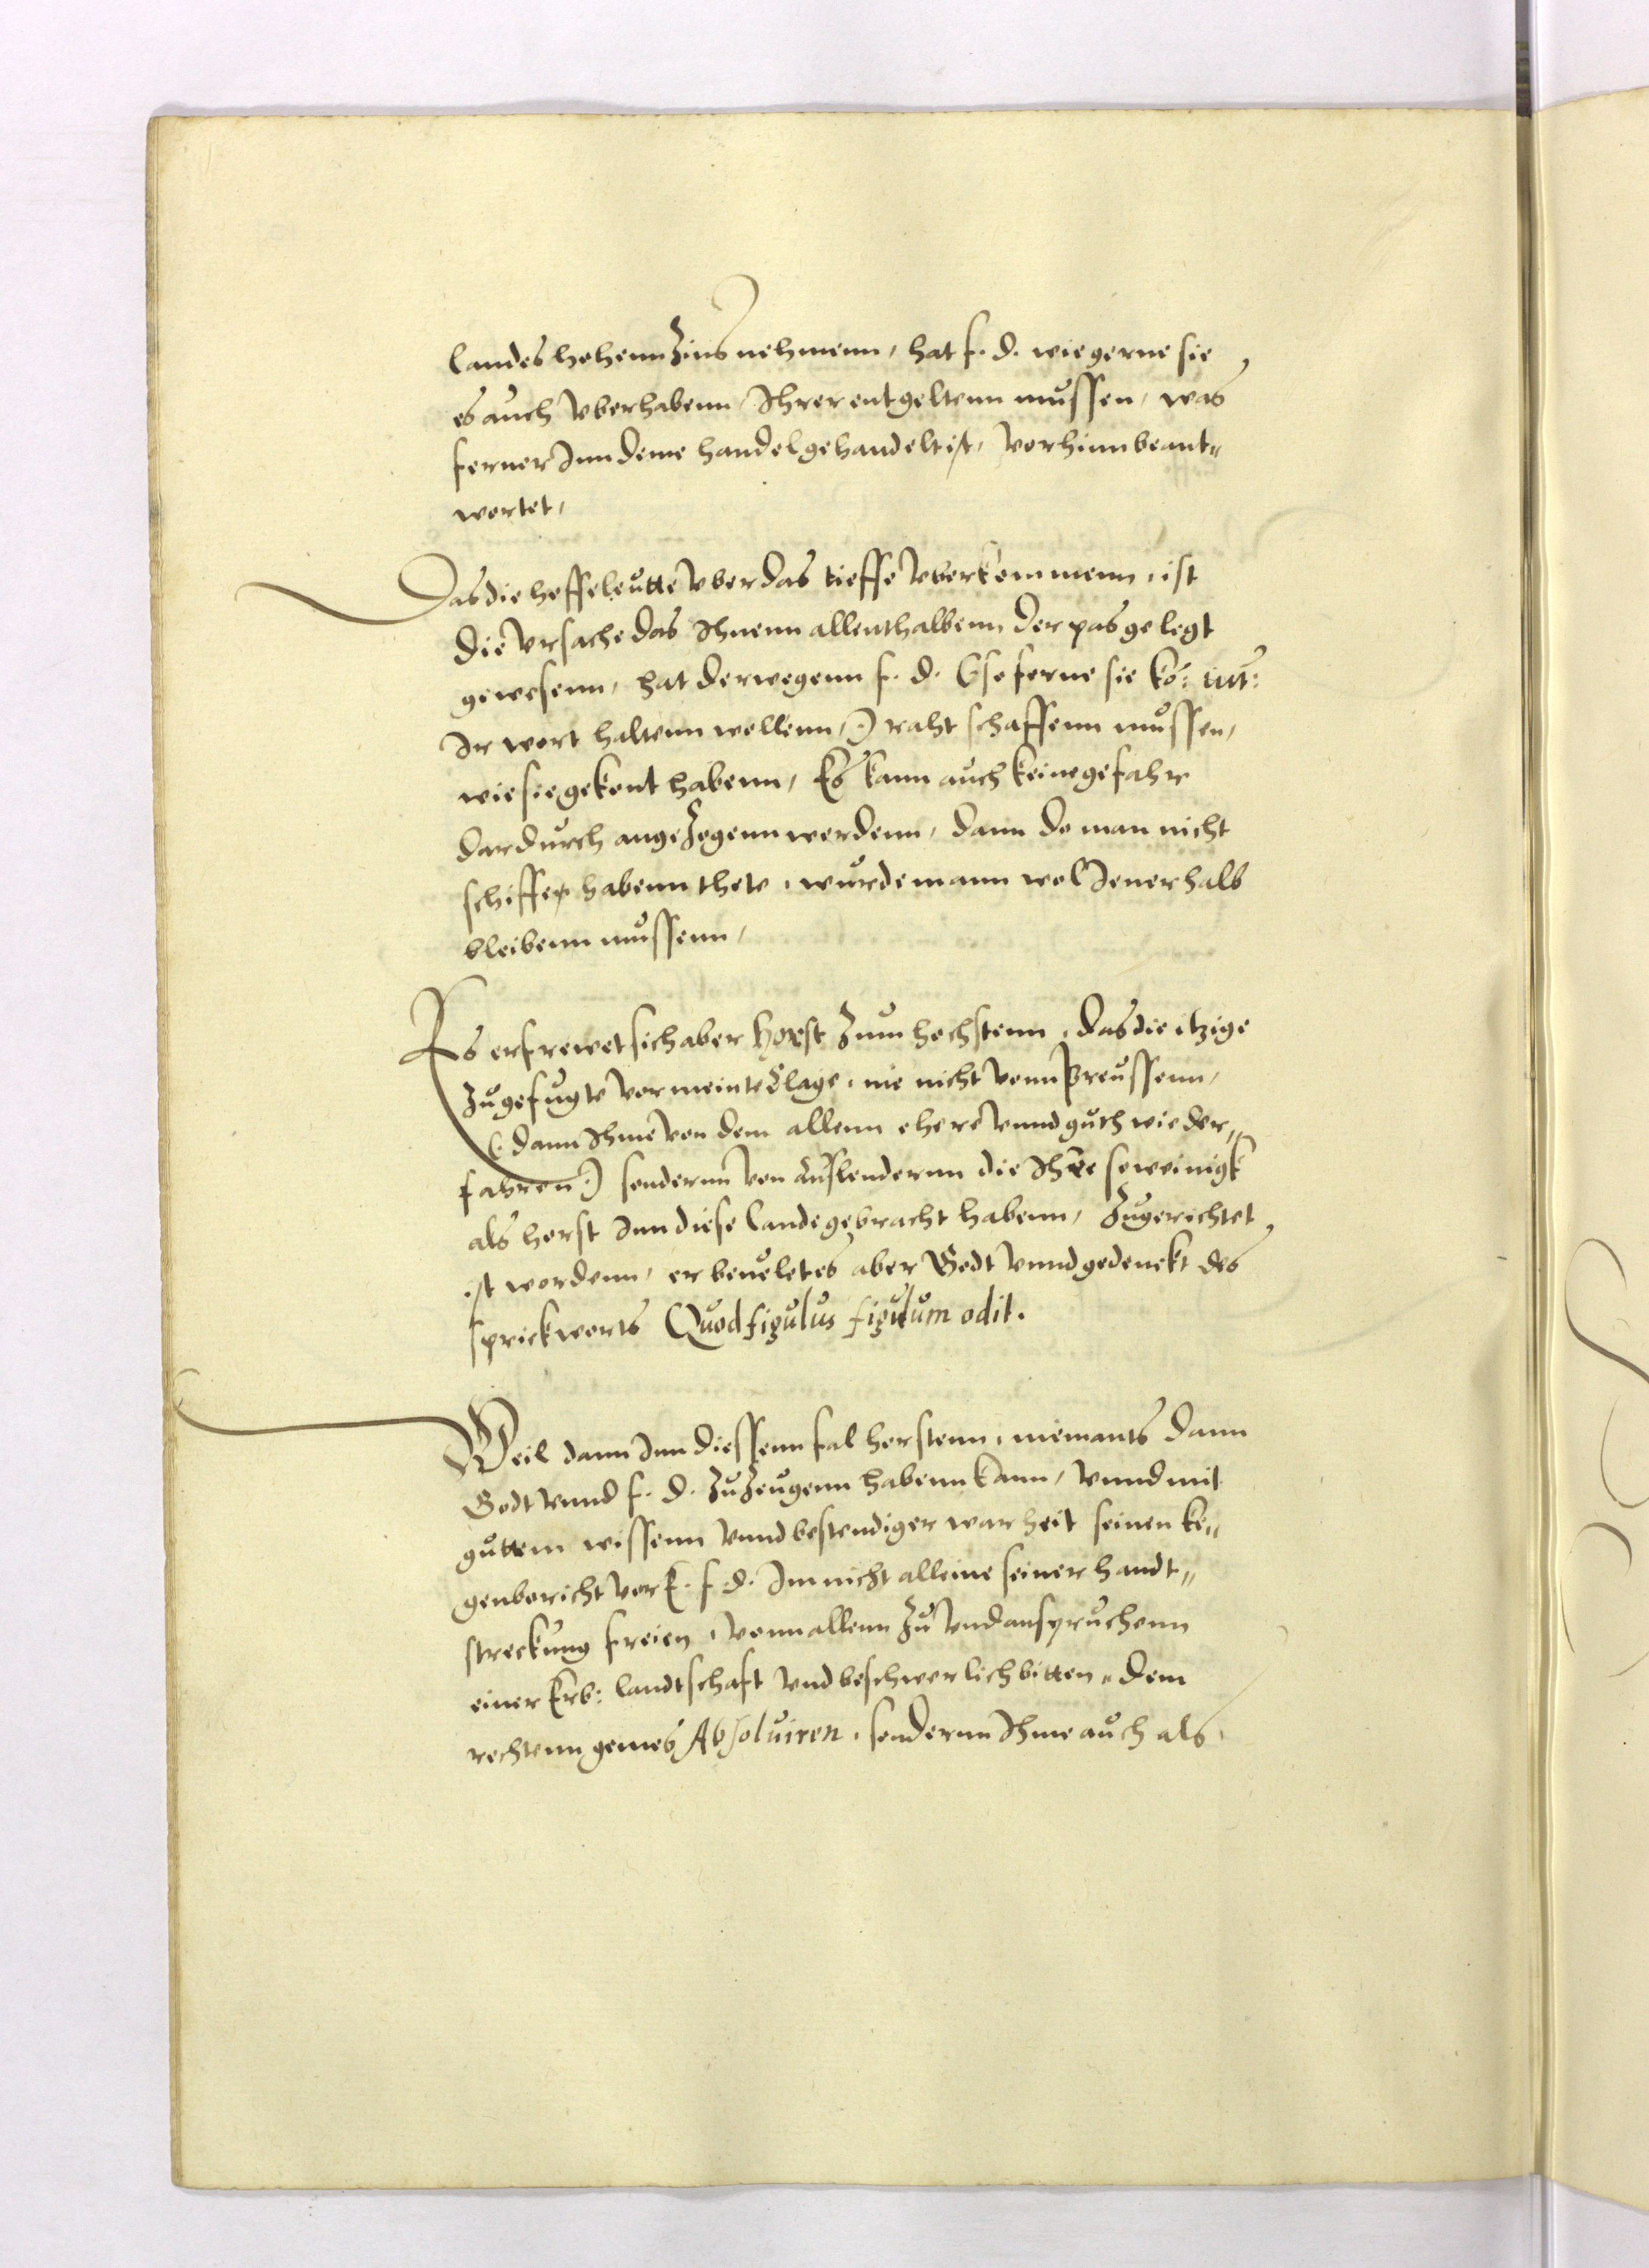 Landes hohenn Zins nehmenn, hat f. d. wie gerne sie
es auch vberhabenn, Ihrer entgeltenn mussen, was
ferner Inn deme handel gehandelt ist, vorhinn beant„
wortet,
Das die hoffeleutte vber das tieffe vberkommenn, ist
die vrsache das Ihnenn allenthalbenn der pas gelegt
gewesenn, hat derwegenn f. d. (so ferne sie ko: mt:
Ir wort haltenn wollenn,) raht schaffenn mussen,
wie sie gekont habenn, Es kann auch keine gefahr
dardurch angezogenn werdenn, dann do man nicht
schiffe habenn thete, wurde mann wol Jenerhalb
bleibenn mussenn,
Es erfrewet sich aber Horst Zum hochstenn, das die itzige
Zugefugte vormeinte Clage, nie nicht vonn Preussenn,
(: dann Ihme von dem allenn ehere vnnd guth wieder„
fahren :) sondernn von Auslendernn die Ihre so weinigk
als horst Inn diese Lande gebracht habenn, Zugerichtet
ist wordenn, er beuelet es aber Godt vnnd gedenckt des
sprickworts Quod figulus figulum odit.
Weil dann Inn diessenn fal horstenn, niemants dann
Godt vnnd f. d. Zu Zeugenn habenn kann, vnnd mit
guttem wissenn vnnd bestendiger warheit seinen ke„
genbericht vor E. f. d. Inn nicht alleine seiner handt„
streckung freien, vonn allenn Zu vnd anspruchenn
einer Erb: Landtschaft vnd beschwerlich bitten, dem
rechtenn gemes Absoluiren, sondernn Ihme auch als